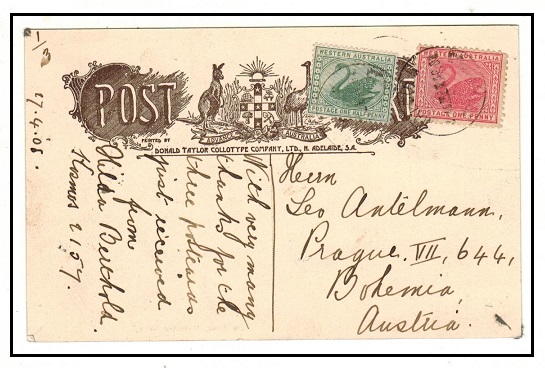 1/3
17.4.05.
POST
ADVANCE AUSTRALIA
PRINTED BY
DONALD TAYLOR COLLOTYPE COMPANY, LTD., N. ADELAIDE, S.A.
WESTERN AUSTRALIA
POSTAGE ONE HALFPENNY
WESTERN AUSTRALIA
POSTAGE ONE PENNY
With very many
thanks for the
three postcards
just received
from
Hilda Berthold.
Kosmos 2157.
Herrn
Leo Antelmann,
Prague. VII, 644,
Bohemia,
Austria.